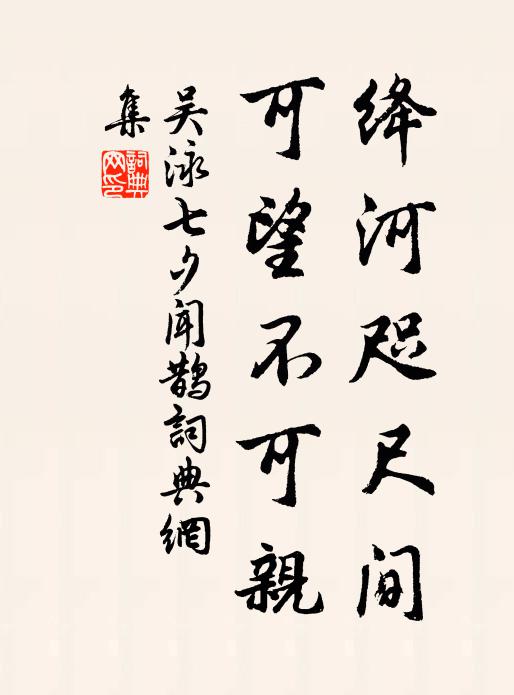 绛河咫尺间
可望不可親
吴泳七夕闻鹊詞典網
集
詞典網印